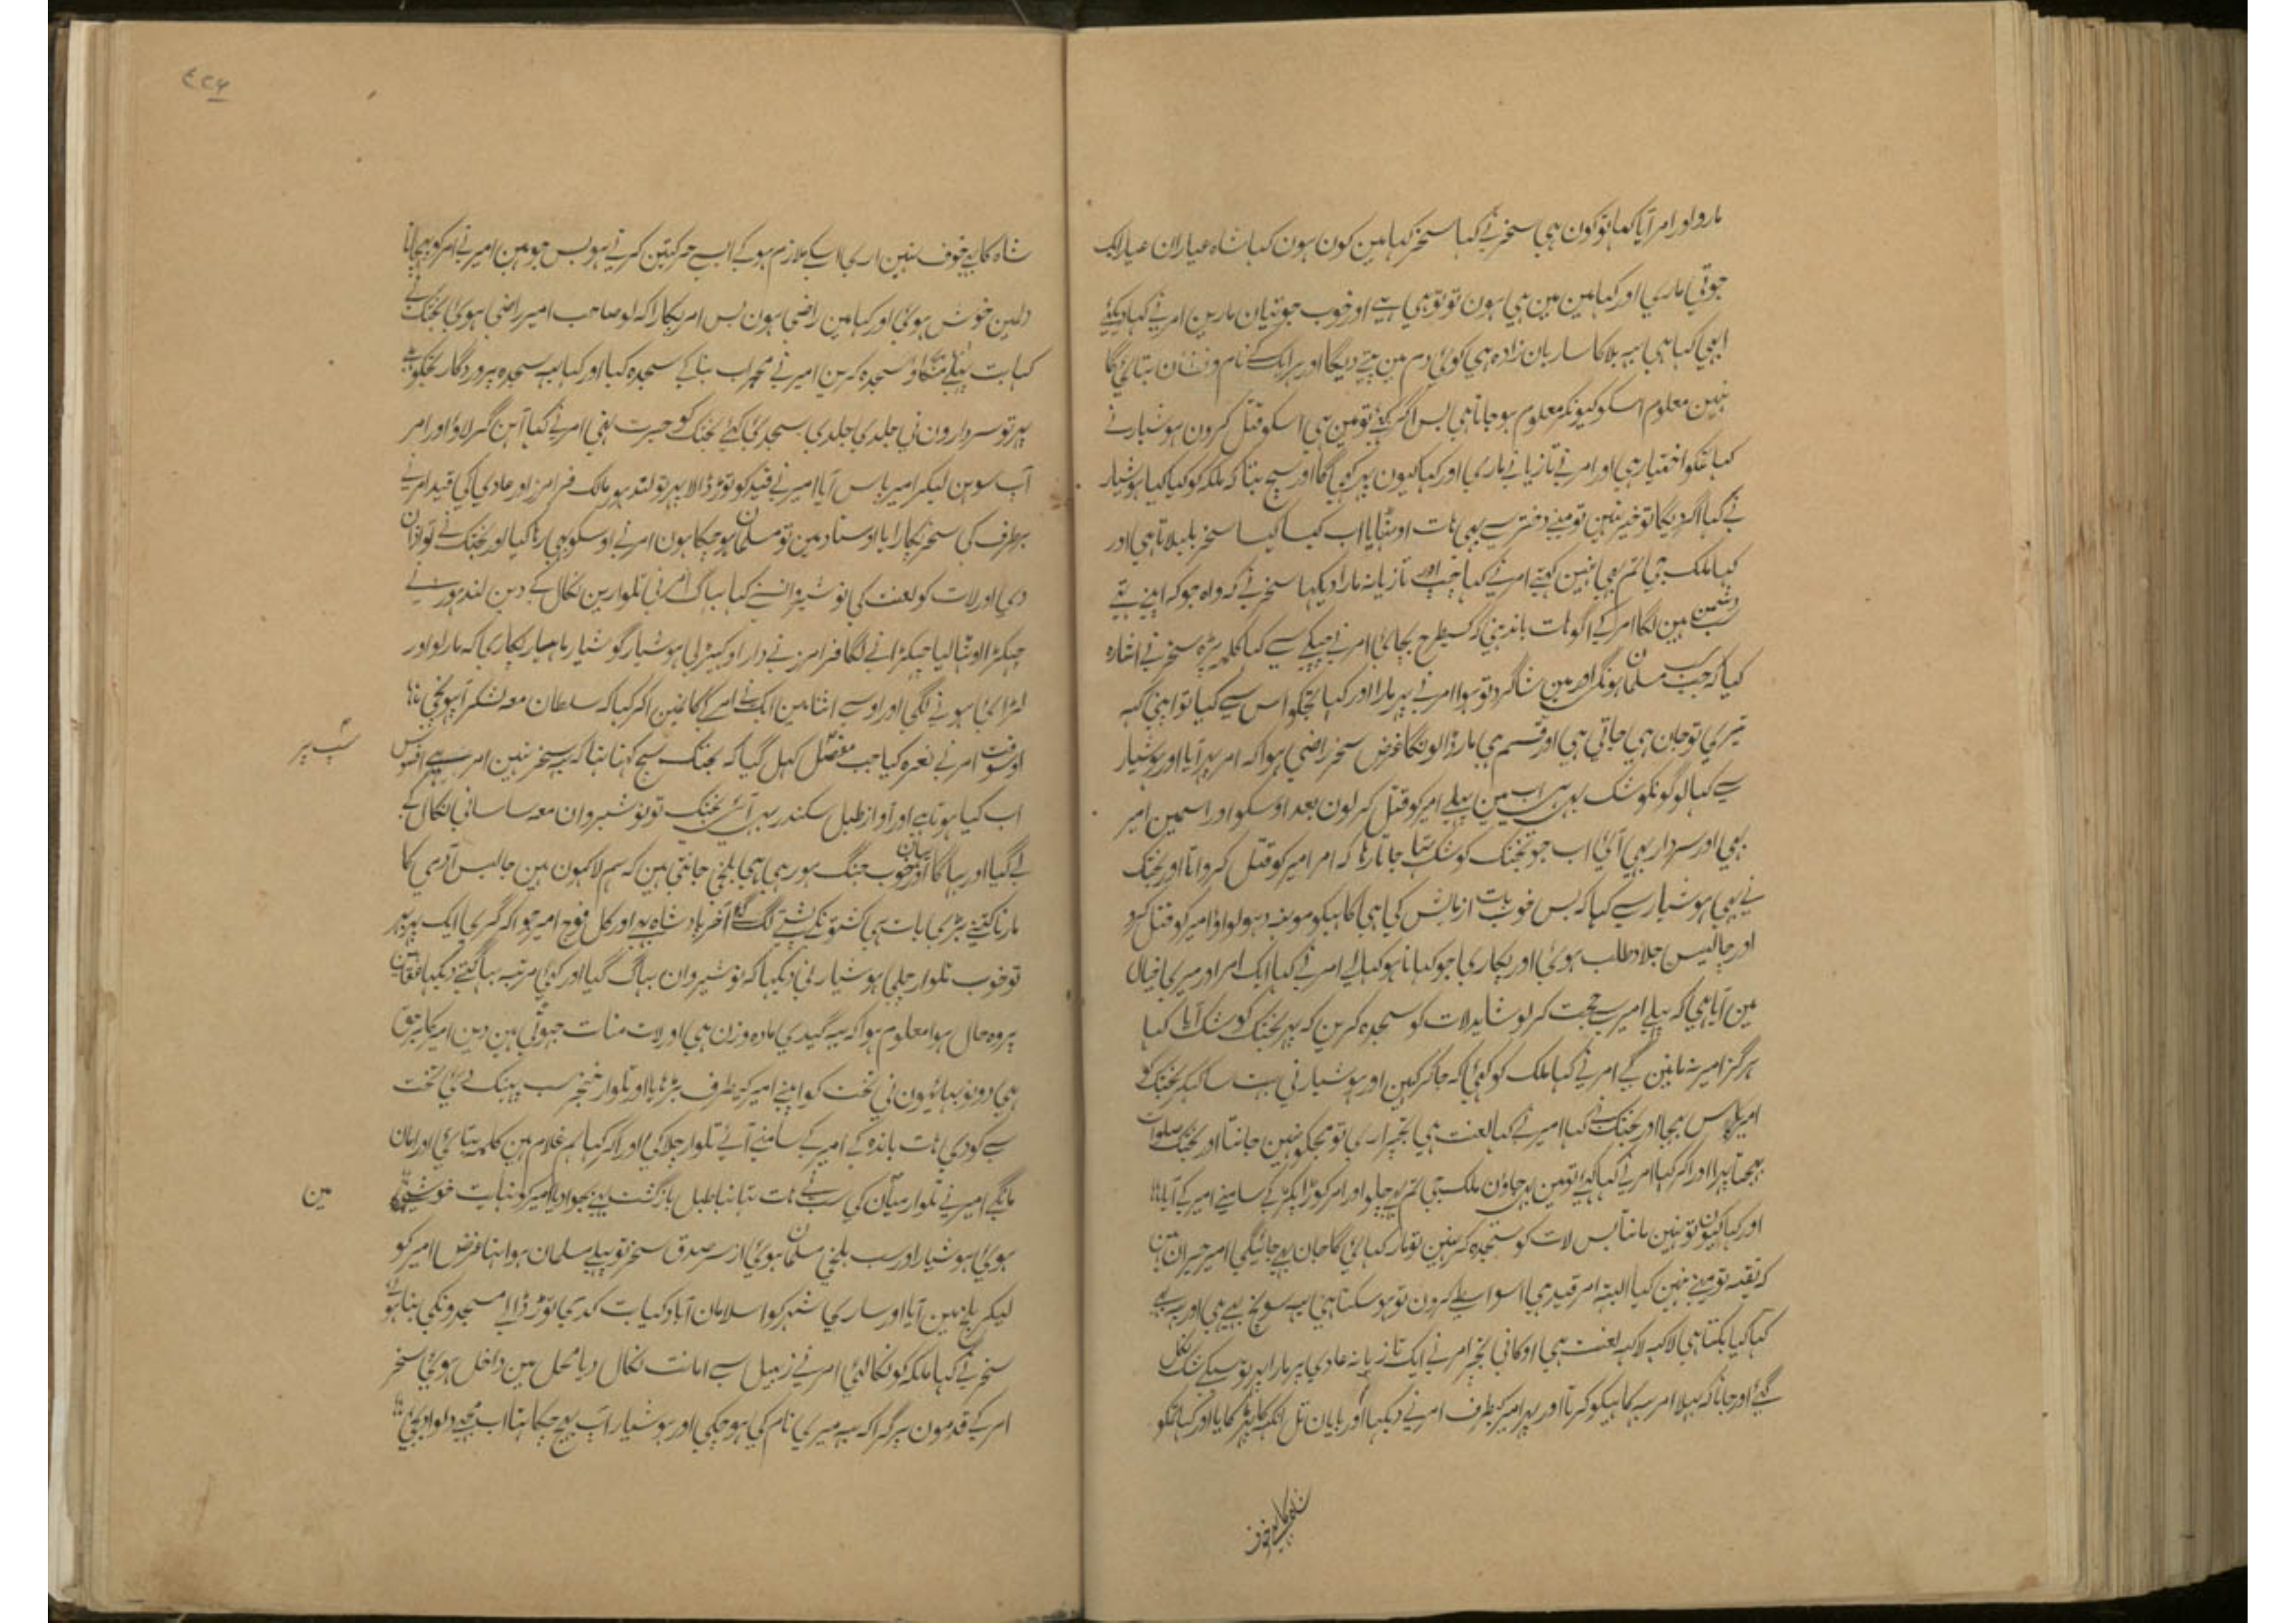 مارو اور امر آیا کہا تو کون ہی سنحر نے کہا سنحر کہا مین کون ہون کہا شاہ عیاران عیار ایک
جوتی ماری اور کہا مین مین ہی ہون تو تو ہی ہے اور خوب جوتیان مارین امر نے کہا دیکہئے
ابہی کیا ہی یہ بلا کا ساربان زادہ ہی کوئی دم مین پتے دیگا اور ہر ایک کے نام و نشان بتائیگا
نہین معلوم اسکو کیونکر معلوم ہو جاتا ہی بس اگر کہئے تو مین ہی اسکو قتل کرون ہوشیار نے
کہا تمکو اختیار ہی اور امر نے تازیانے ماری اور کہا کیون پہر کہیگا اور سچ بتا کہ ملکہ کو کیا کیا ہوشیار
نے کہا اگر دیگا تو خیر نہین تو مینے دختر سے بہی ہات اوٹہایا اب کیسا کیسا سنحر بلبلاتا ہی اور
کہا ملک جی تم بہی نہین کہتے امر نے کہا چپ اور تازیانہ مارا دیکہا سنحر نے کہ واہ جو کہ اپنے تہے
سب دشمن ہین لگا امر کے آگو ہات باندہنی کہ کسیطرح بچائی امر نے چپکے سے کہا کلمہ پڑہ سنحر نے اشارہ
کیا کہ جب مسلمان ہونگا اور مین شاگرد تو ہوا امر نے پہر مارا اور کہا تجکو اس سے کیا تو اپنی کہہ
تیری تو جان ہی جاتی ہی اور قسم ہی مار ڈالونگا غرض سنحر راضی ہوا کہ امر پہر آیا اور ہوشیار
سے کہا لوگونکو شک ہی اب مین پہلے امیر کو قتل کر لون بعد اوسکو اور اسمین امیر
بہی اور سردار بہی آئی اب جو بختک کو شک تہا جاتا رہا کہ امر امیر کو قتل کرواتا اور بختک
نے بہی ہوشیار سے کہا کہ بس خوب بات ازمائش کی ہی کاہیکو مونہہ دہولواؤ امیر کو قتل کرو
اور چالیس جلاد طلب ہوئی اور پکاری جو کہانا ہو کہا لے امر نے کہا ایک امر اور میری خیال
مین آیا ہی کہ پہلے امیر سے حجت کر لو شاید لات کو سجدہ کرین کہ پہر بختک کو شک آیا کہا
ہرگز امیر نہ مانین گے امر نے کہا ملک کو کہئی کہ جا کر کہین اور ہوشیار نی بہت سا کہکر بختک کو
امیر پاس بہیجا اور بختک نے کہا امیر نے کہا لعنت ہی تجپر اری تو مجکو نہین جانتا اور بختک صلوات
بہیجتا پہرا اور آکر کہا امر نے کہا کہئے تو مین بہی جاؤن ملک جی تم بہی چلو اور امر کوڑا پکڑ کے سامنے امیر کے آیا
اور کہا کیون تو نہین مانتا بس لات کو سجدہ کر نہین تو مار کہائیگا جان بہی جائیگی امیر حیران ہین
کہ تقیہ تو مینے نہین کیا البتہ امر قید ہی اسواسطے کرون تو ہو سکتا ہی یہ سونچ رہے ہی اور
کہا کیا بکتا ہی لاکہہ لاکہہ لعنت ہی اوکافی تجپر امر نے ایک تازیانہ عادی پر مارا پہر تو سبکے شک نکل
گئے اور جانا کہ بہلا امر یہ کاہیکو کرتا اور پہر امیر کیطرف امر نے دیکہا اور بایان تل انکہہ کا پہڑکایا اور کہا تمکو
شاہ کا یہ خوف نہین اری اسکے ملازم ہو کے ایسے حرکتین کرتے ہو بس جو مین امیر نے امر کو پہچانا
دلمین خوش ہوئی اور کہا مین راضی ہون بس امر پکارا کہ لو صاحب امیر راضی ہوئی بختک نے
کہا بت پہلے منگاؤ سجدہ کرین امیر نے محراب بنا کے سجدہ کیا اور کہا یہ سجدہ پروردگار تجکو ہے
پہر تو سردارون نی جلدی جلدی سجدی کئے بختک کو حیرت تہی امر نے کہا آہن گر لاؤ اور امر
آپ سوہن لیکر امیر پاس آیا امیر نے قید کو توڑ ڈالا پہر تو لندہور مالک فرامرز اور عادی کی قید امر نے
برطرف کی سنحر پکارا یا اوستاد مین تو مسلمان ہو چکا ہون امر نے اوسکو بہی رہا کیا اور بختک نے تو اذان
دی اور لات کو لعنت کی نوشیروان نے کہا بہاگ امر نی تلوارین نکال کے دین لندہور نے
چہکڑا اوٹہا لیا چہکڑانے لگا فرامرز نے دار اوکہیڑ لی ہوشیار گوشیار ناہنجار پکاری کہ مارلو اور
لڑائی ہونے لگی اور اوسے اثنا مین ایک نے امر کے کان مین آکر کہا کہ سلطان معہ لشکر آپہونچی
اوسوقت امر نے نعرہ کیا جب مفصل کہل گیا کہ بختک سچ کہتا تہا کہ یہ سنحر نہین امر ہے افسوس
شب پر
اب کیا ہوتا ہے اور آواز طبل سکندر بہی آئی بختک تو نوشیروان معہ ساسانی نکال کے
لے گیا اور بہاگا اور یہان خوب جنگ ہو رہی ہی بلخی جانتی ہین کہ ہم لاکہون ہین چالیس آدمی کا
مارنا کتنے بڑی بات ہی کشتونکے پشتے لگ گئے آخر بادشاہ بہی اور کل فوج امیر جو آکر گری ایک پہر بہر
تو خوب تلوار چلی ہوشیار نی دیکہا کہ نوشیروان بہاگ گیا اور کوئی مرتبہ بہاگتے دیکہا تہا
پر وہ حال ہوا معلوم ہوا کہ یہ گیدی مادہ وزن ہی اور لات منات جہوٹی ہین دین امیر کا برحق
ہی دونو بہائیون نی تخت کو اپنے امیر کیطرف بڑہایا اور تلوار خنجر سب پہینک دئی تخت
سے کودی ہات باندہ کے امیر کے سامنے آئے تلوار چلا کی اور آکر کہا ہم غلام ہین کلمہ بتائی اور امان
مانگے امیر نے تلوار میان کی سب نے ہات تہانبا طبل بازگشت بہی بجوا دیا امیر کو نہایت خوشی
مین
ہوئی ہوشیار اور سب بلخی مسلمان ہوئی از سر صدق سنحر تو پہلے مسلمان ہوا تہا غرض امیر کو
لیکر بلخ مین آیا اور ساری شہر کو اسلامان آباد کیا بت کدی توڑ ڈالے مسجدونکی بنا ہوئی
سنحر نے کہا ملکہ کو نکالئی امر نے زنبیل سے امانت نکال دیا محل مین داخل ہوئی سنحر
امر کے قدمون پر گرا کہ یہ میری نام کی ہو چکی اور ہوشیار آپ بہیج چکا تہا اب مجہے دلوا دیجئی